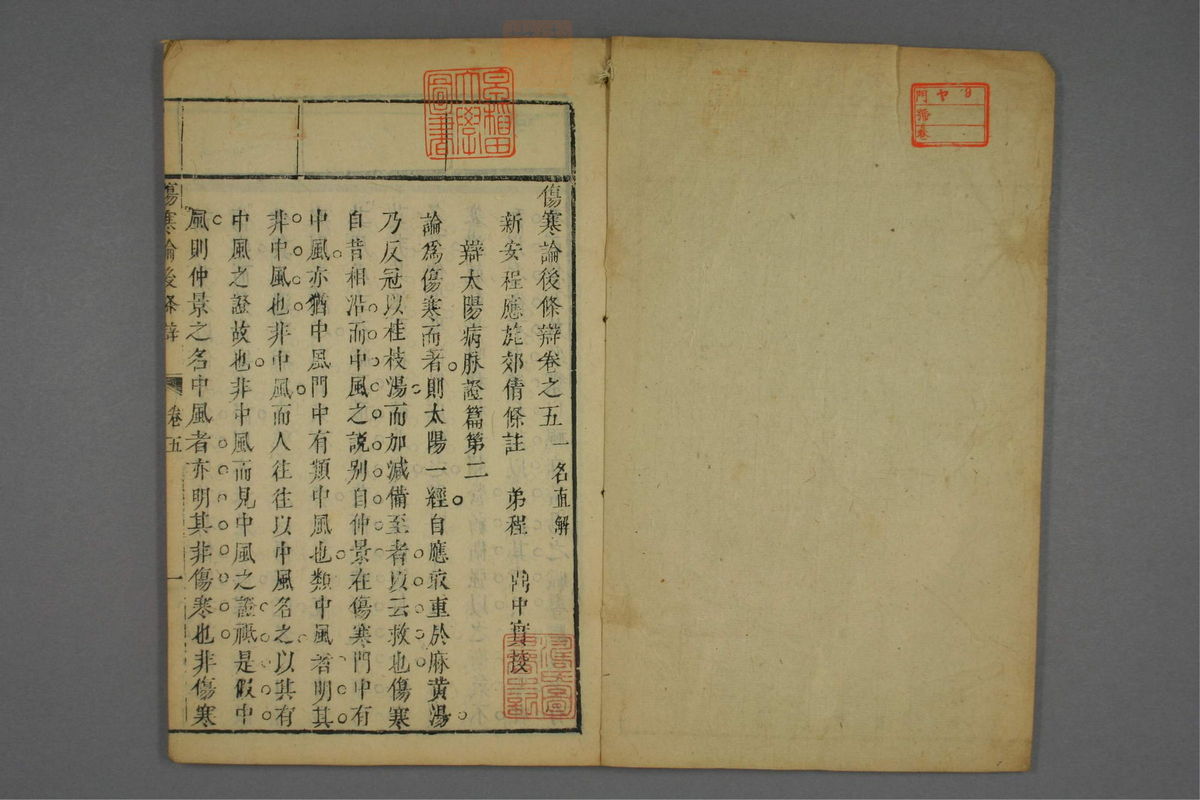 傷寒論後條辯卷之五 一名直解
新安程應旄郊倩條註 弟程 鼎中實授
辯太陽病脉證篇第二
論爲傷寒而著則太陽一經自應最重於麻黃湯
乃反冠以桂枝湯而加減備至者以云救也傷寒
自昔相沿而中風之說別自仲景在傷寒門中有
中風亦猶中風門中有類中風也類中風者明其
非中風也非中風而人往往以中風名之以其有
中風之證故也非中風而見中風之證祗是假中
風則仲景之名中風者亦明其非傷寒也非傷寒
傷寒論後條辯 卷五 一
早稻田大學圖書
門 ヤ 9
號
卷